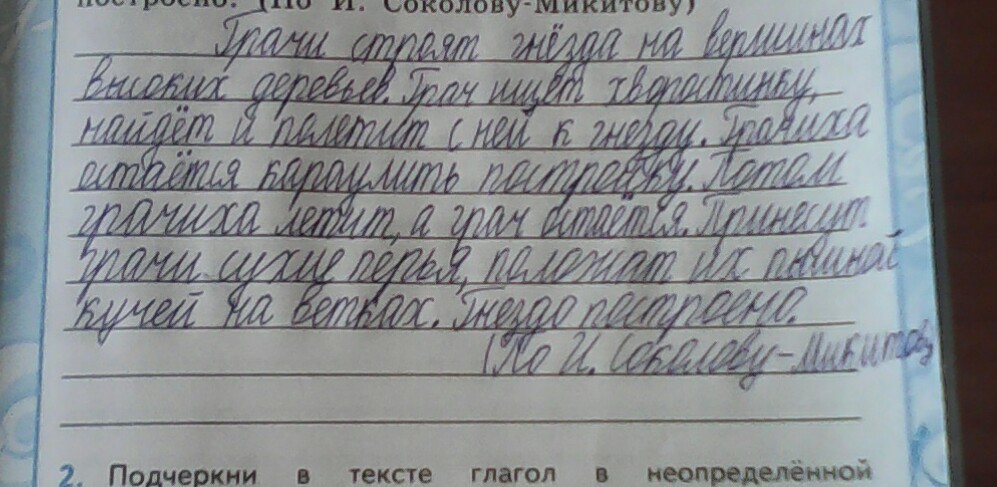 построено. (По И. Соколову-Микитову)
Грачи строят гнёзда на вершинах
высоких деревьев. Грач ищет хворостинку,
найдёт и полетит с ней к гнезду. Грачиха
остаётся караулить постройку. Потом
грачиха летит, а грач остаётся. Принесут
грачи сухие перья, положат их пышной
кучей на ветках. Гнездо построено.
(По И. Соколову-Микитову
2. Подчеркни в тексте глагол в неопределённой